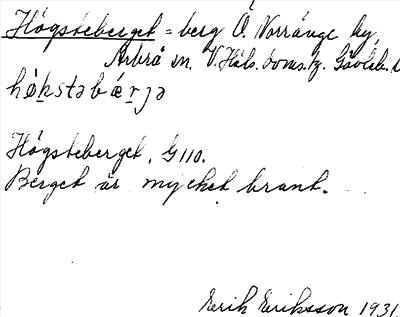 Högsteberget = berg Ö. Vorränge by,
Arbrå sn. V. Häls. doms. tz. Gävleb. l
hǿkstəbǽrjə
Högsteberget, G 110.
Berget är mycket brant.
Erik Eriksson 1931.